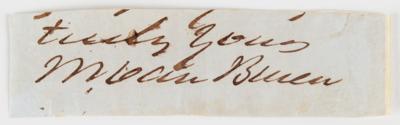 truly yours
M Van Buren